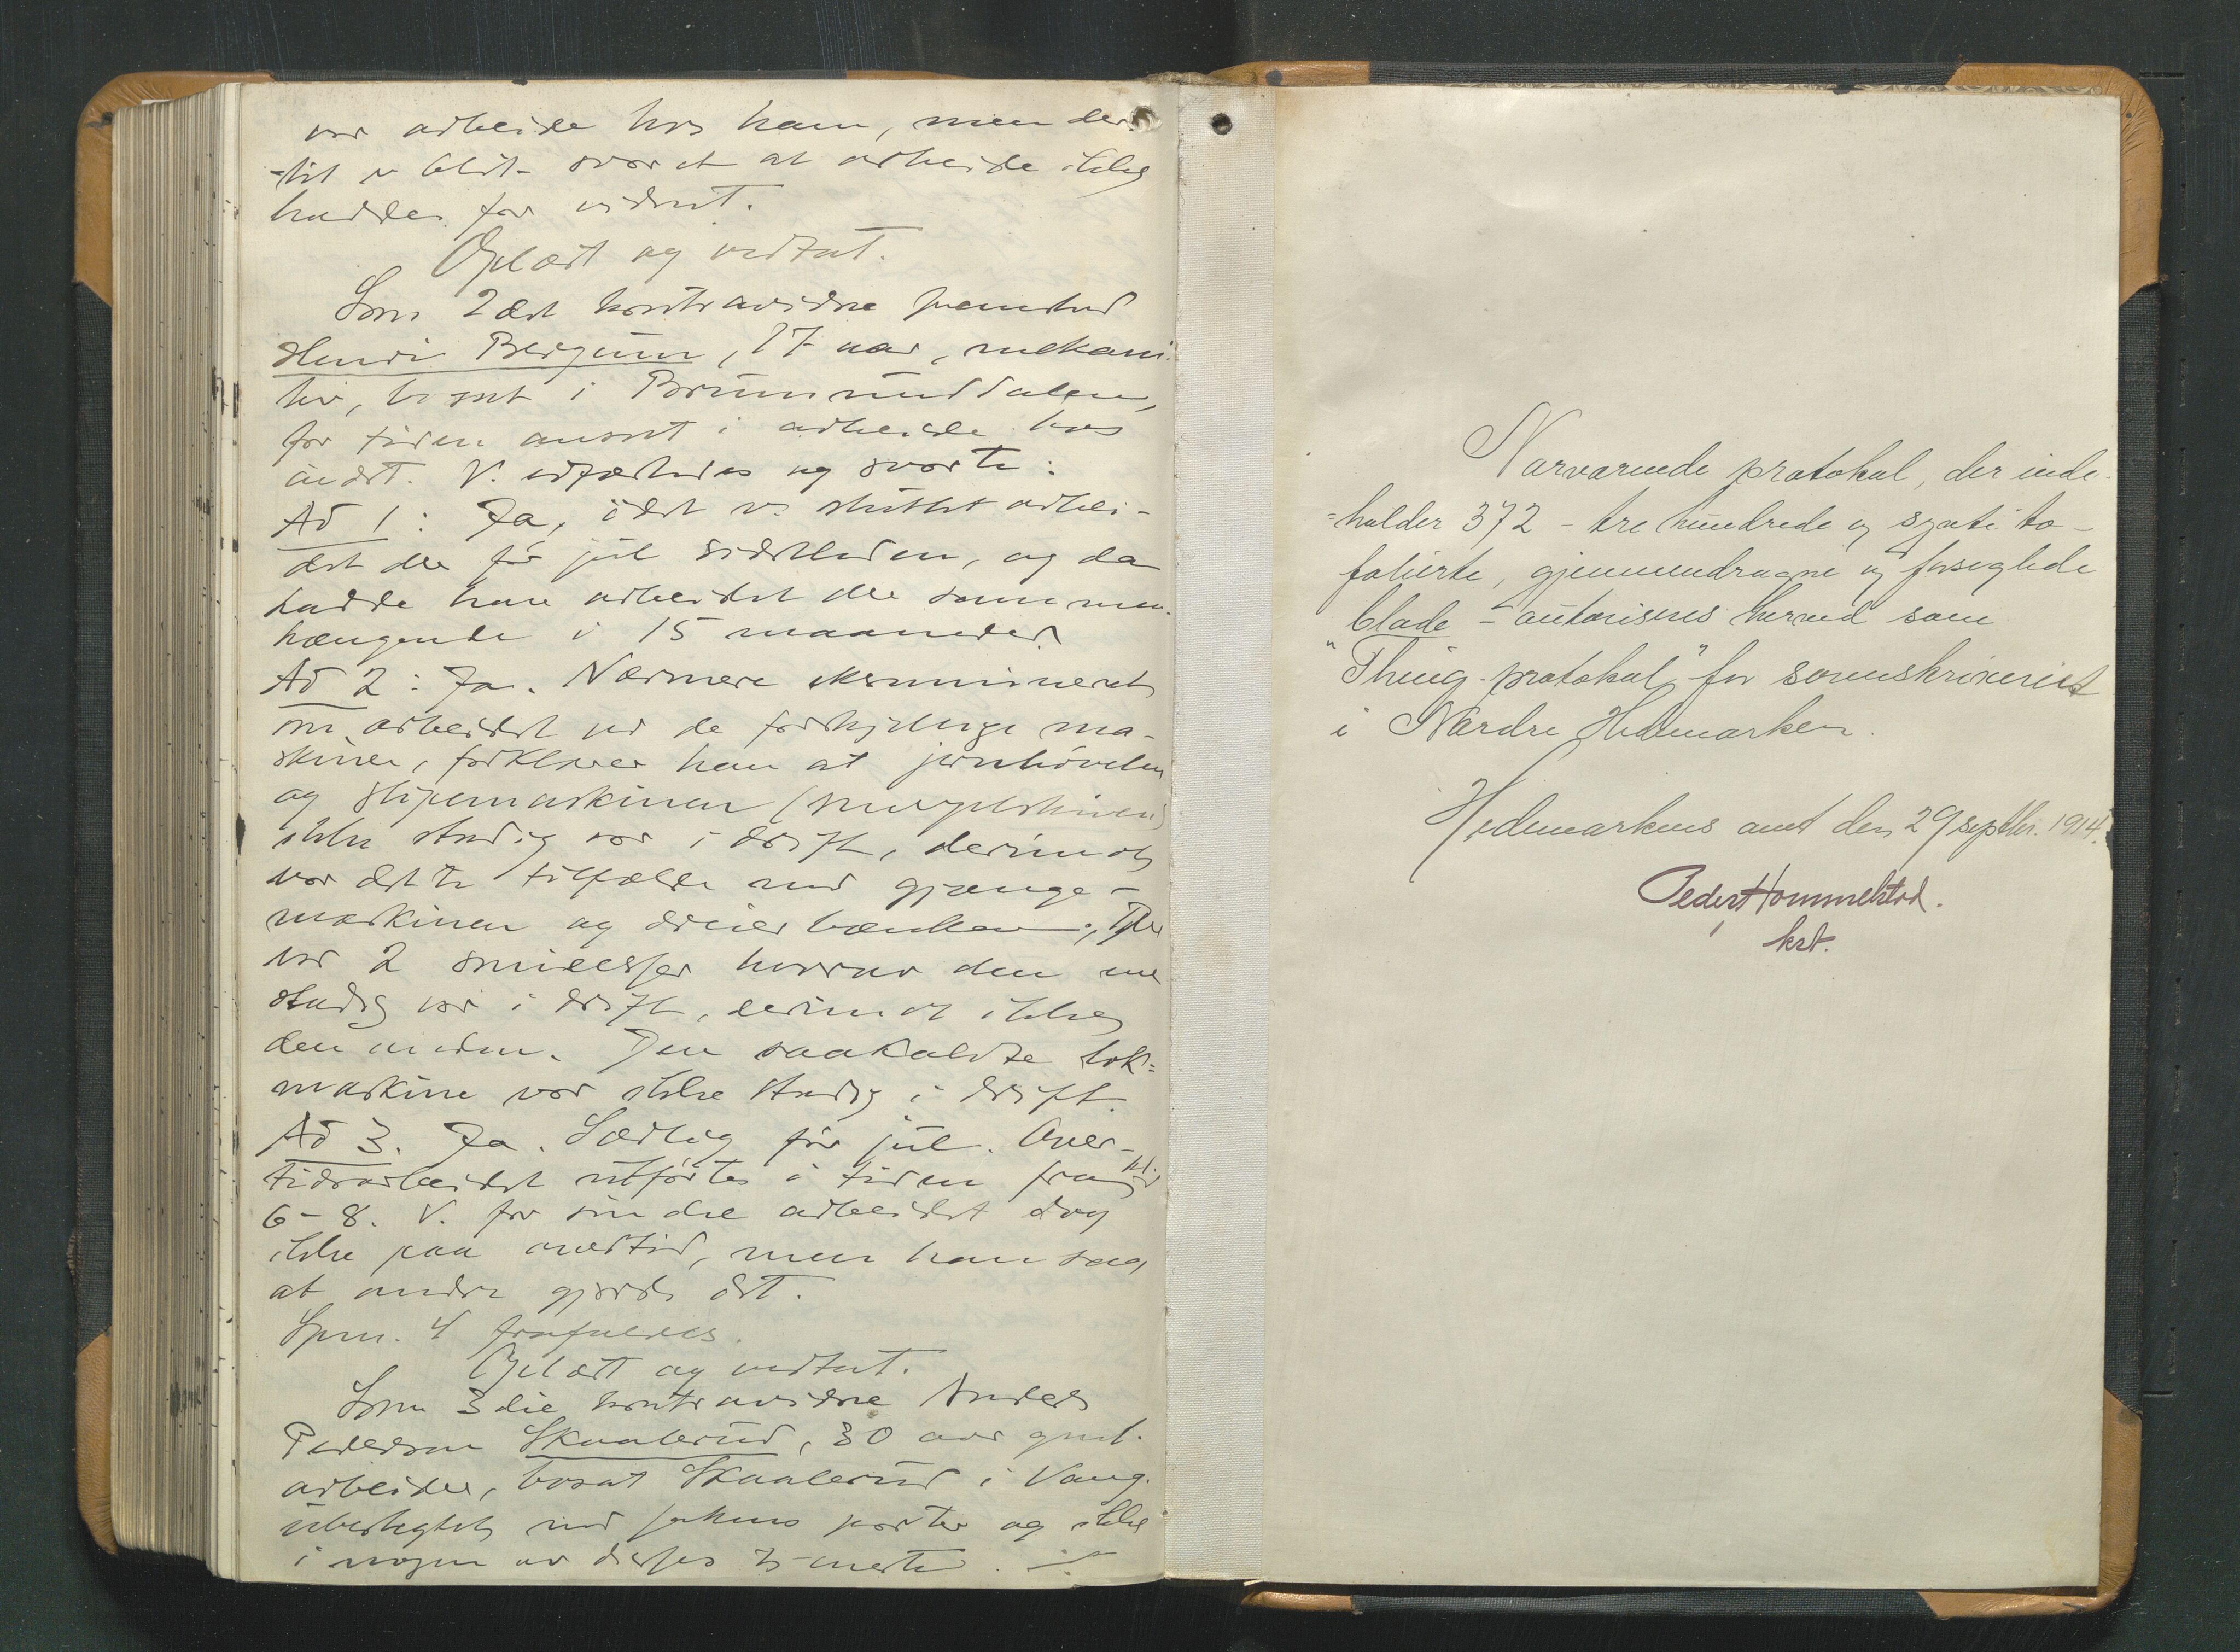 var arbeide hos ham, men der-
-til er blit svaret at arbeide ikke
haddes for vidnet.
Oplæst og vedtat.
Som 2det kontravidne fremstod
Henri Bergum, 17 aar, mekani-
ker, bosat i Brummunddalen,
for tiden ansat i arbeide hos
andet. V. utfærdedes og svarte:
Ad 1: Ja, idet v. sluttet arbei-
det der før jul sidstleden, og da
hadde han arbeidet der sammen-
hængende i 15 maaneder.
Ad 2: Ja. Nærmere eksamineret
om arbeidet ved de forskjellige ma-
skiner, forklarer han at jernhøvelen
og slipemaskinen (smergelskiven)
ikke stadig var i drift, derimot
var dette tilfælde med gjænge-
maskinen og dreierbænken. Der
var 2 smiesser hvorav den ene
stadig var i drift, derimot ikke
den anden. Den saakaldte lok=
maskine var ikke stadig i drift.
Ad 3. Ja. Særlig før jul. Over-
tidsarbeidet utførtes i tiden fra kl.
6-8. V. for sin del arbeidet dog
ikke paa overtid, men han saa
at andre gjorde det.
Spm. 4 frafaldes.
Oplæst og vedtat.
Som 3die kontravidne Anders
Pedersen Skaalerud, 30 aar gml.
arbeider, bosat Skaalerud i Vang.
ubeslegtet med sakens parter og ikke
i nogen av disses tjeneste.
Nærværende protokol, der inde-
=holder 372 - tre hundrede og sytti to -
folierte, gjennemdragne og forseglede
blade - autoriseres herved som
"Thing-protokol" for sorenskriveriet
i Nordre Hedemarken.
Hedemarkens amt den 29 septbr. 1914.
Peder Hommelstad.
kst.